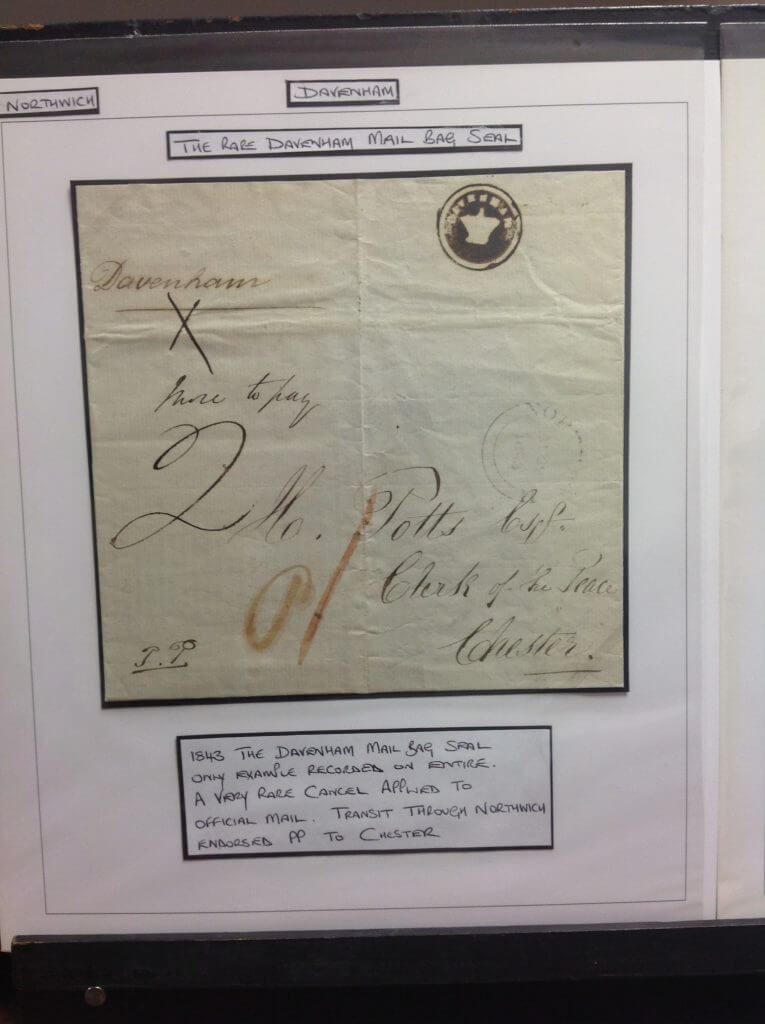 NORTHWICH
DAVENHAM
THE RARE DAVENHAM MAIL BAG SEAL
Davenham
X
More to pay
2
Potts Esqr.
Clerk of the Peace
Chester.
P 1
P.P
1843 THE DAVENHAM MAIL BAG SEAL
ONLY EXAMPLE RECORDED ON ENTIRE.
A VERY RARE CANCEL APPLIED TO
OFFICIAL MAIL. TRANSIT THROUGH NORTHWICH
ENDORSED PP TO CHESTER